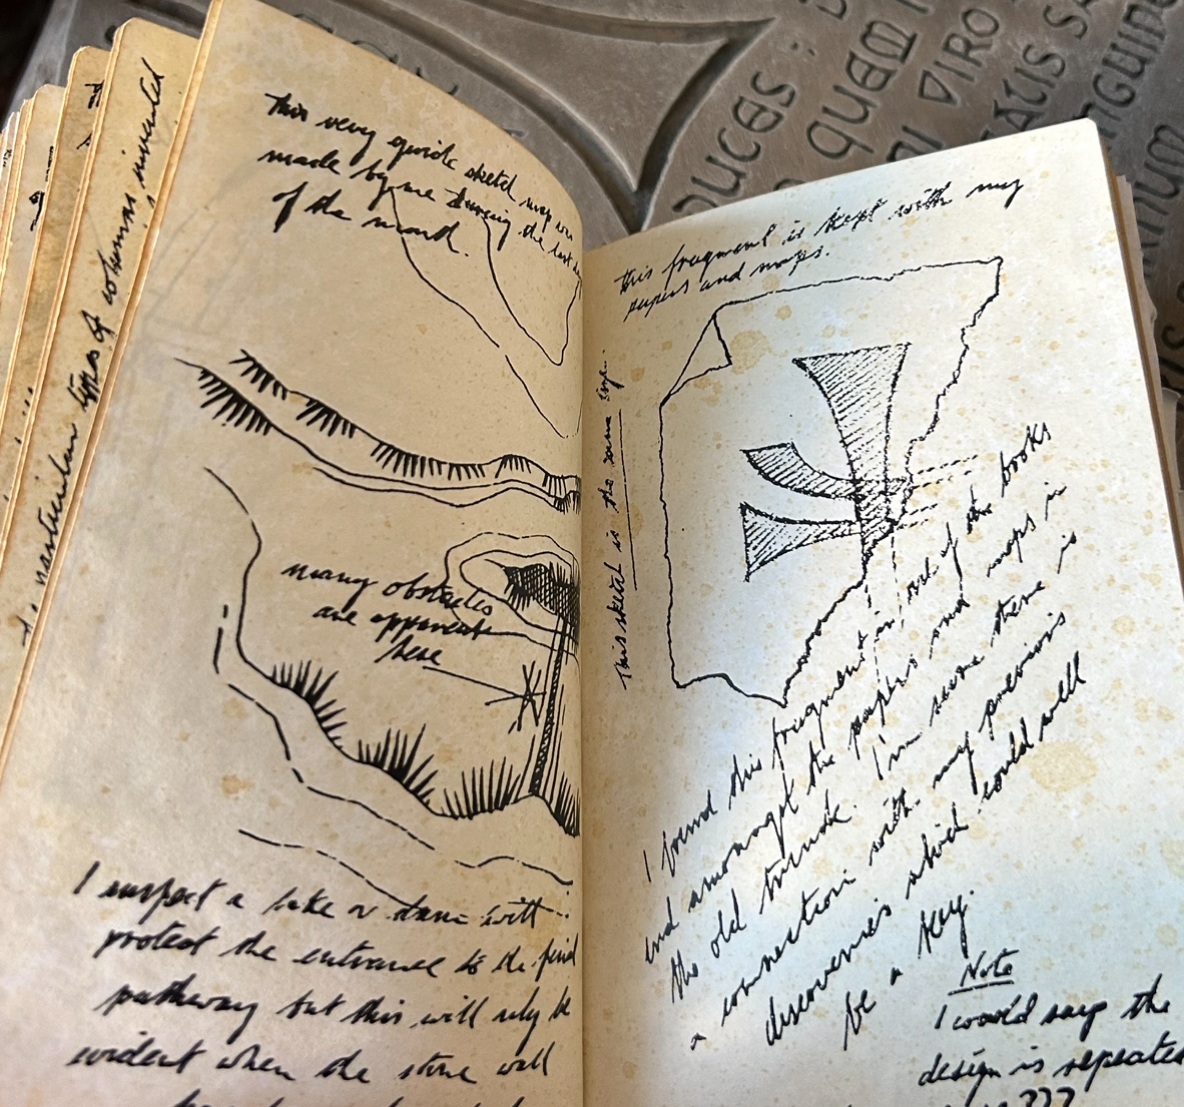 This very quick sketch map was
made by me during the last
of the
many obstacles
are apparent
here
I suspect a lake or dam with
protect the entrance to the final
pathway but this will only be
evident when the stone wall
types of columns invented
This fragment is kept with my
papers and maps.
This sketch is the same size.
I found this fragment in one of the books
and amongst the papers and maps in
the old trunk. I'm sure there is
a connection with my previous
discoveries which could well
be a key.
Note
I would say the
design is repeated
???
DUCES :
QUEM
VIRO
TALIS